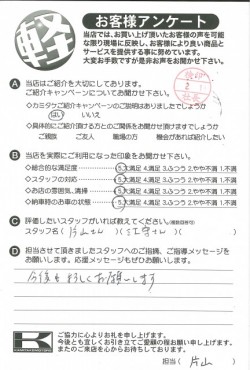 軽
お客様アンケート
当店では、お買い上げ頂いたお客様の声を可能
な限り現場に反映し、お客様により良い商品と
サービスを提供する事に努めています。
大変お手数ですが是非お声をお聞かせ下さい。
A 当店はご紹介を大切にしております。
ご紹介キャンペーンについてお聞かせ下さい。
◇カミタケご紹介キャンペーンのご説明はありましたでしょうか
はい いいえ
◇具体的にご紹介頂ける方とのご関係をお聞かせ頂けますでしょうか
ご親族 ご友人 職場の方 機会があれば紹介したい
B 当店を実際にご利用になった印象をお聞かせ下さい。
◇総合的な満足度 5.大満足 4.満足 3.ふつう 2.やや不満 1.不満
◇スタッフの対応 5.大満足 4.満足 3.ふつう 2.やや不満 1.不満
◇お店の雰囲気、清掃 5.大満足 4.満足 3.ふつう 2.やや不満 1.不満
◇納車時のお車の状態 5.大満足 4.満足 3.ふつう 2.やや不満 1.不満
C 評価したいスタッフがいれば教えてください。(複数回答可)
スタッフ名(片山さん)( さん)
D 担当させて頂きましたスタッフへのご指摘、ご指導メッセージを
お願いします。応援メッセージもぜひお願いします。
今後もよろしくお願いします
K
ご協力に心よりお礼を申し上げます。
今後とも宜しくお引き立てご愛顧の程お願い申し上げます。
またのご来店を心からお待ちしております。
担当(片山)